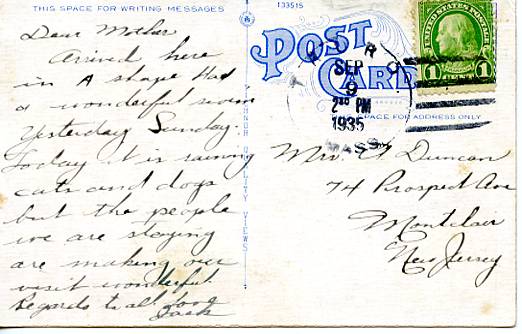 THIS SPACE FOR WRITING MESSAGES
133515
Dear Mother
Arrived here
in A shape Had
a wonderful swim
Yesterday Sunday.
Today it is raining
cats and dogs
but the people
we are staying
are making our
visit wonderful.
Regards to all
Jack
POST CARD
SEP
9
2 30 PM
1935
MASS
UNITED STATES POSTAGE
1 1
SPACE FOR ADDRESS ONLY
QUALITY VIEWS
Mrs. Duncan
74 Prospect Ave
Montclair
New Jersey